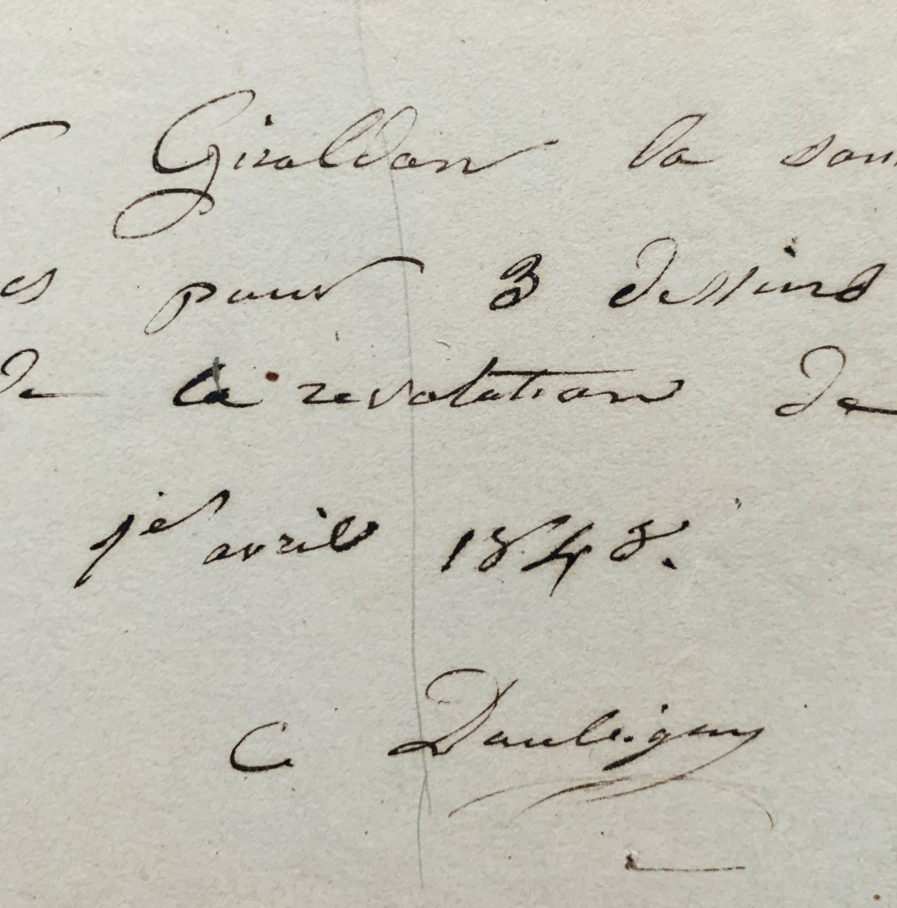 Giraldon la som
es pour 3 dessins
de la revolution de
1er avril 1848.
C Daubigny